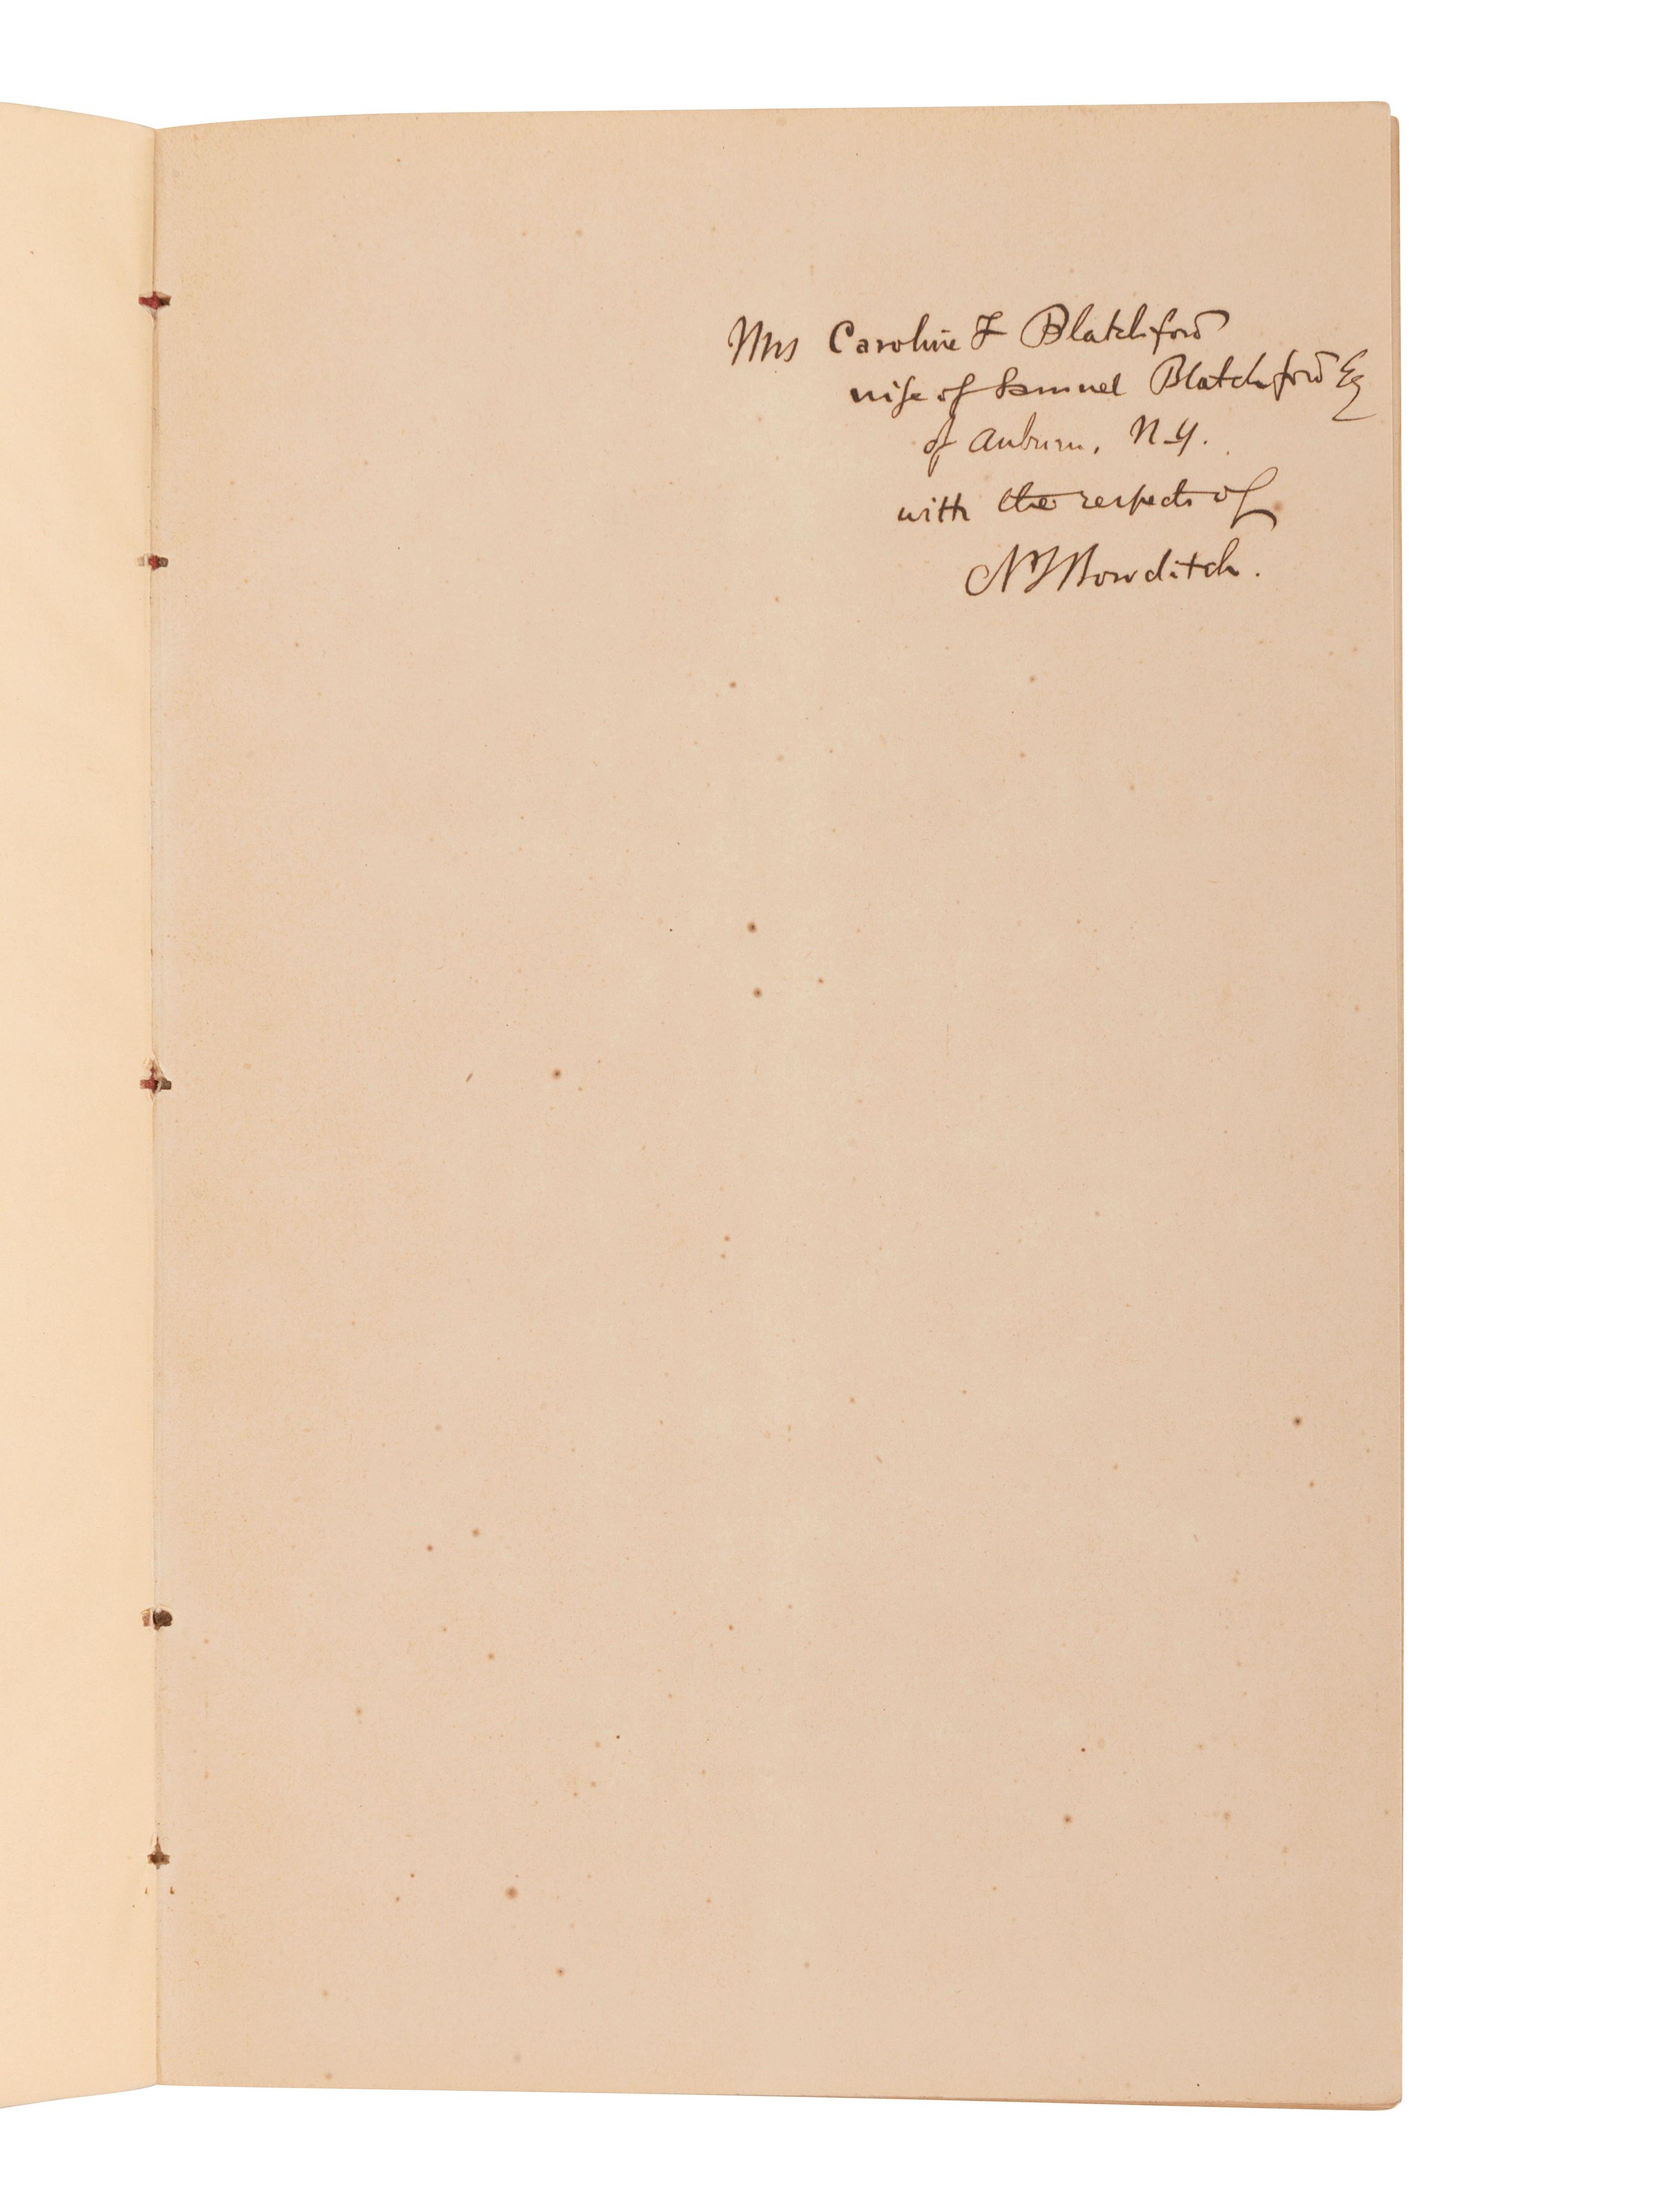 Mrs Caroline F Blatchford
wife of Samuel Blatchford Esq
of Auburn, N.Y.
with the respects of
N I Bowditch.